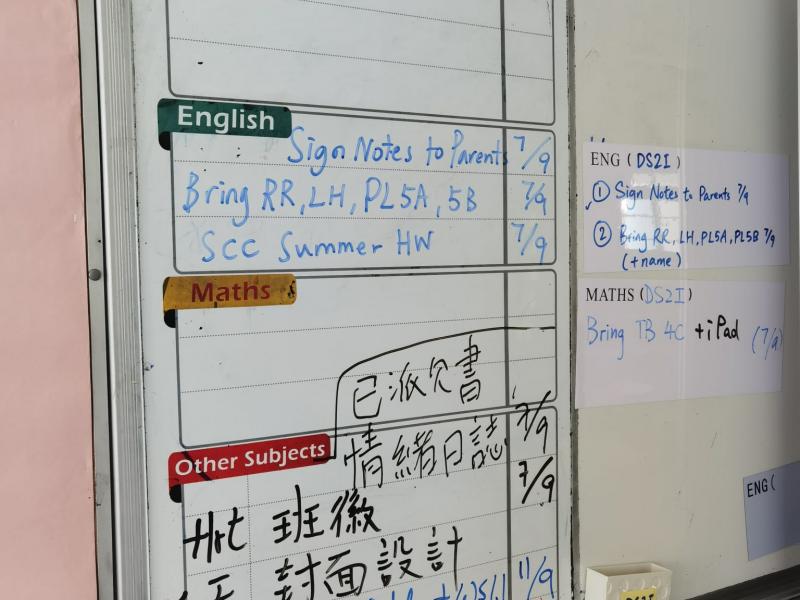 English
Sign Notes to Parents 7/9
Bring RR, LH, PL5A, 5B 7/9
SCC Summer HW 7/9
Maths
已派欠書
Other Subjects
情緒日誌 7/9
Art 班徽 7/9
封面設計 11/9
ENG (DS2I)
① Sign Notes to Parents 7/9
② Bring RR, LH, PL5A, PL5B 7/9
(+name)
MATHS (DS2I)
Bring TB 4C +iPad (7/9)
ENG (